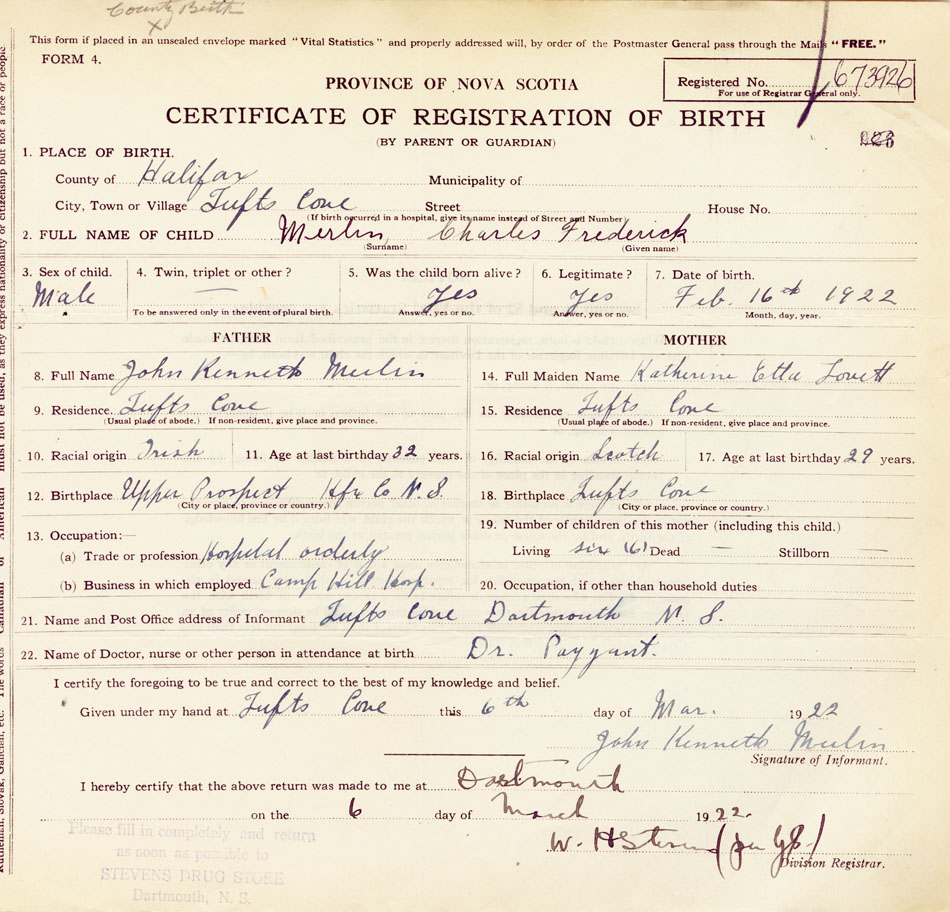 County Birth
X
This form if placed in an unsealed envelope marked "Vital Statistics" and properly addressed will, by order of the Postmaster General pass through the Mails "FREE."
FORM 4.
PROVINCE OF NOVA SCOTIA
Registered No. 673926
For use of Registrar General only.
CERTIFICATE OF REGISTRATION OF BIRTH
(BY PARENT OR GUARDIAN)
1. PLACE OF BIRTH.
County of Halifax Municipality of
City, Town or Village Tufts Cove Street House No.
(If birth occurred in a hospital, give its name instead of Street and Number)
2. FULL NAME OF CHILD Merlin, Charles Frederick
(Surname) (Given name)
3. Sex of child. 4. Twin, triplet or other? 5. Was the child born alive? 6. Legitimate? 7. Date of birth.
Male — Yes Yes Feb. 16th 1922
To be answered only in the event of plural birth. Answer, yes or no. Answer, yes or no. Month, day, year.
FATHER MOTHER
8. Full Name John Kenneth Merlin 14. Full Maiden Name Katherine Etta Lovett
9. Residence. Tufts Cove 15. Residence Tufts Cove
(Usual place of abode.) If non-resident, give place and province. (Usual place of abode.) If non-resident, give place and province.
10. Racial origin Irish 11. Age at last birthday 32 years. 16. Racial origin Scotch 17. Age at last birthday 29 years.
12. Birthplace Upper Prospect Hfx Co N.S. 18. Birthplace Tufts Cove
(City or place, province or country.) (City or place, province or country.)
19. Number of children of this mother (including this child.)
13. Occupation:—
(a) Trade or profession Hospital orderly Living six (6) Dead — Stillborn —
(b) Business in which employed Camp Hill Hosp. 20. Occupation, if other than household duties
21. Name and Post Office address of Informant Tufts Cove Dartmouth N.S.
22. Name of Doctor, nurse or other person in attendance at birth Dr. Payzant.
I certify the foregoing to be true and correct to the best of my knowledge and belief.
Given under my hand at Tufts Cove this 6th day of Mar. 1922
John Kenneth Merlin
Signature of Informant.
I hereby certify that the above return was made to me at Dartmouth
on the 6 day of March 1922.
W. H Stevens
Division Registrar.
Please fill in completely and return
as soon as possible to
STEVENS DRUG STORE
Dartmouth, N. S.